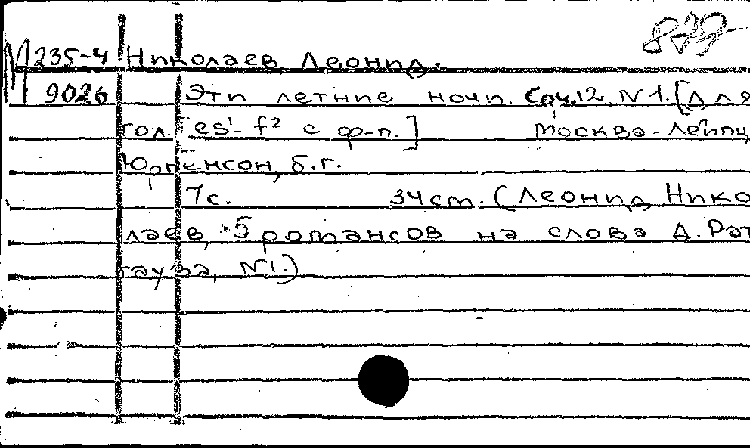 М 235-4 Николаев, Леонид.
9026 Эти летние ночи. Соч.12, N1. [Для
гол. es¹-f² с ф-п.] Москва-Лейпц
Юргенсон, б.г.
7с. 34см. (Леонид Нико
лаев, 5 романсов на слова Д. Рат
гауза, N1.)